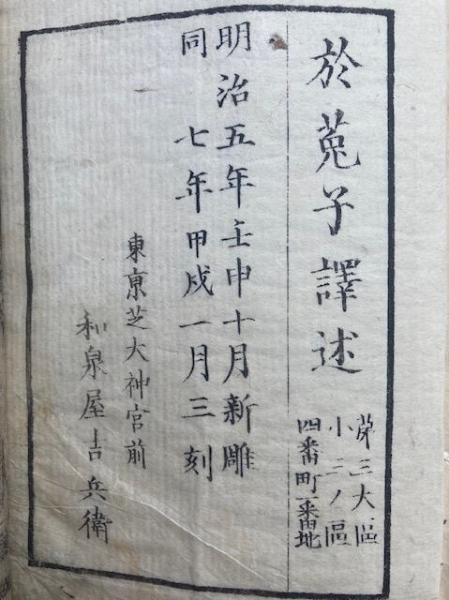 於菟子譯述
第三大區
小三ノ區
四番町一番地
明治五年壬申十月新雕
同 七年甲戌一月三刻
東京芝大神宮前
和泉屋吉兵衛